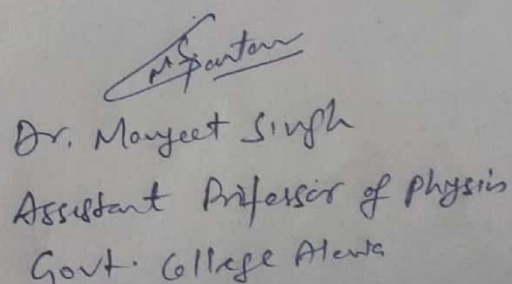 Dr. Manjeet Singh
Assistant Professor of Physics
Govt. College Alewa